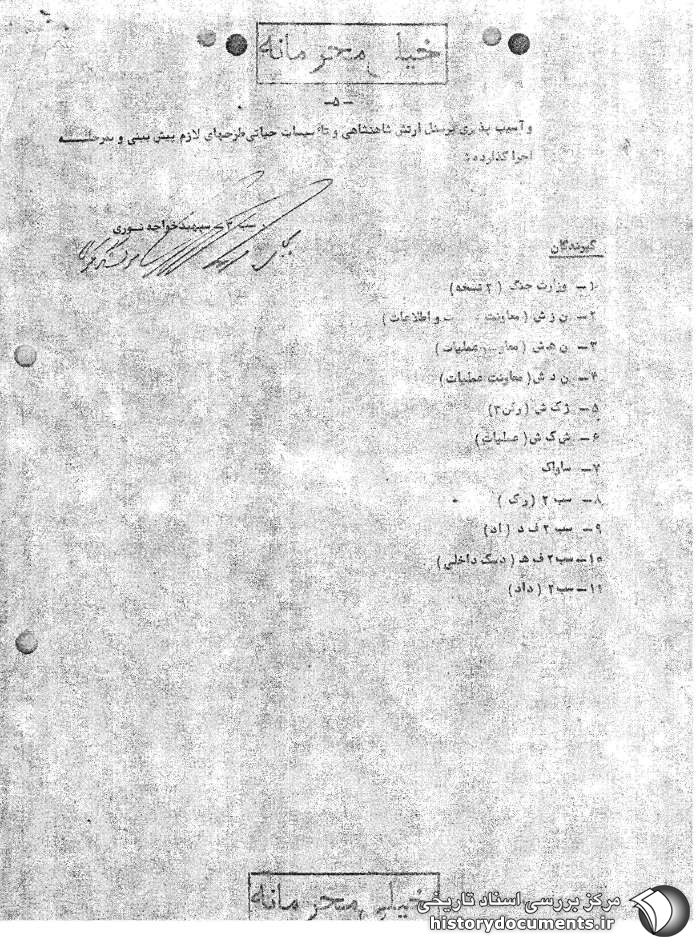 خیلی محرمانه
-۵-
و آسیب پذیری پرسنل ارتش شاهنشاهی و تاسیسات حیاتی طرحهای لازم پیش بینی و بمرحلـــه
اجرا گذارده شد
سپهبد خواجه نوری
گیرندگان
۱- وزارت جنگ (۲ نسخه)
۲- ن ز ش (معاونت و اطلاعات)
۳- ن ه ش (معاونت عملیات)
۴- ن د ش (معاونت عملیات)
۵- ژ ک ش (رکن ۲)
۶- ش ک ش (عملیات)
۷- ساواک
۸- سب ۲ (رک)
۹- سب ۲ ف د (اد)
۱۰- سب ۲ ف ه (دسک داخلی)
۱۱- سب ۲ (داد)
خیلی محرمانه
مرکز بررسی اسناد تاریخی
historydocuments.ir